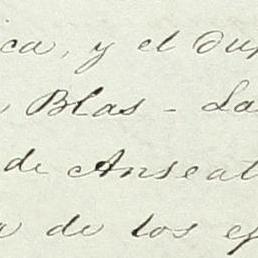 ica, y el Dup
Blas - La
de Anseat
a de los ef